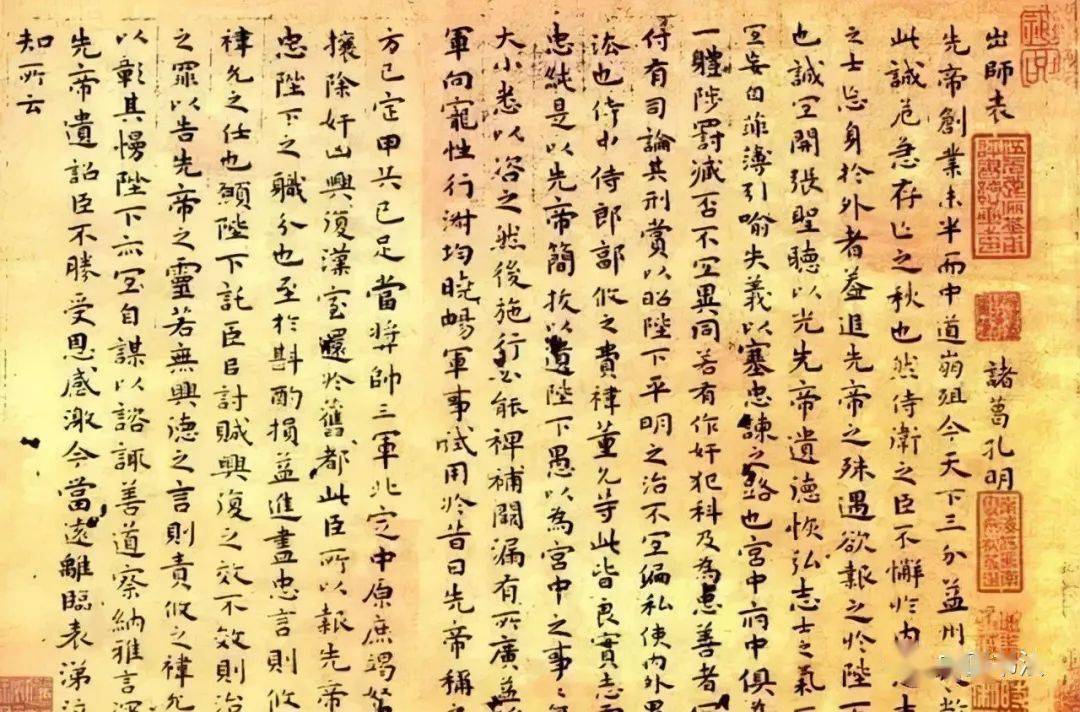 出師表 諸葛孔明
先帝創業未半而中道崩殂今天下三分益州
此誠危急存亡之秋也然侍衛之臣不懈於内忠志
之士忘身於外者蓋追先帝之殊遇欲報之於陛下
也誠宜開張聖聽以光先帝遺德恢弘志士之氣
宜妄自菲薄引喻失義以塞忠諫之路也宮中府中俱
一體陟罰減否不宜異同若有作奸犯科及為忠善者宜
付有司論其刑賞以昭陛下平明之治不宜偏私使内外異
法也侍中侍郎郭攸之費禕董允等此皆良實志
忠純是以先帝簡拔以遺陛下愚以為宮中之事
大小悉以咨之然後施行必能裨補闕漏有所廣益
軍向寵性行淑均曉暢軍事試用於昔日先帝稱之
方已定甲兵已足當獎帥三軍北定中原庶竭駑
攘除奸凶興復漢室還於舊都此臣所以報先帝
忠陛下之職分也至於斟酌損益進盡忠言則攸
禕允之任也願陛下託臣㠯討賊興復之效不效則治
之罪以告先帝之靈若無興德之言則責攸之禕允
以彰其慢陛下亦宜自謀以諮諏善道察納雅言深
先帝遺詔臣不勝受恩感激今當遠離臨表涕泣
知所云